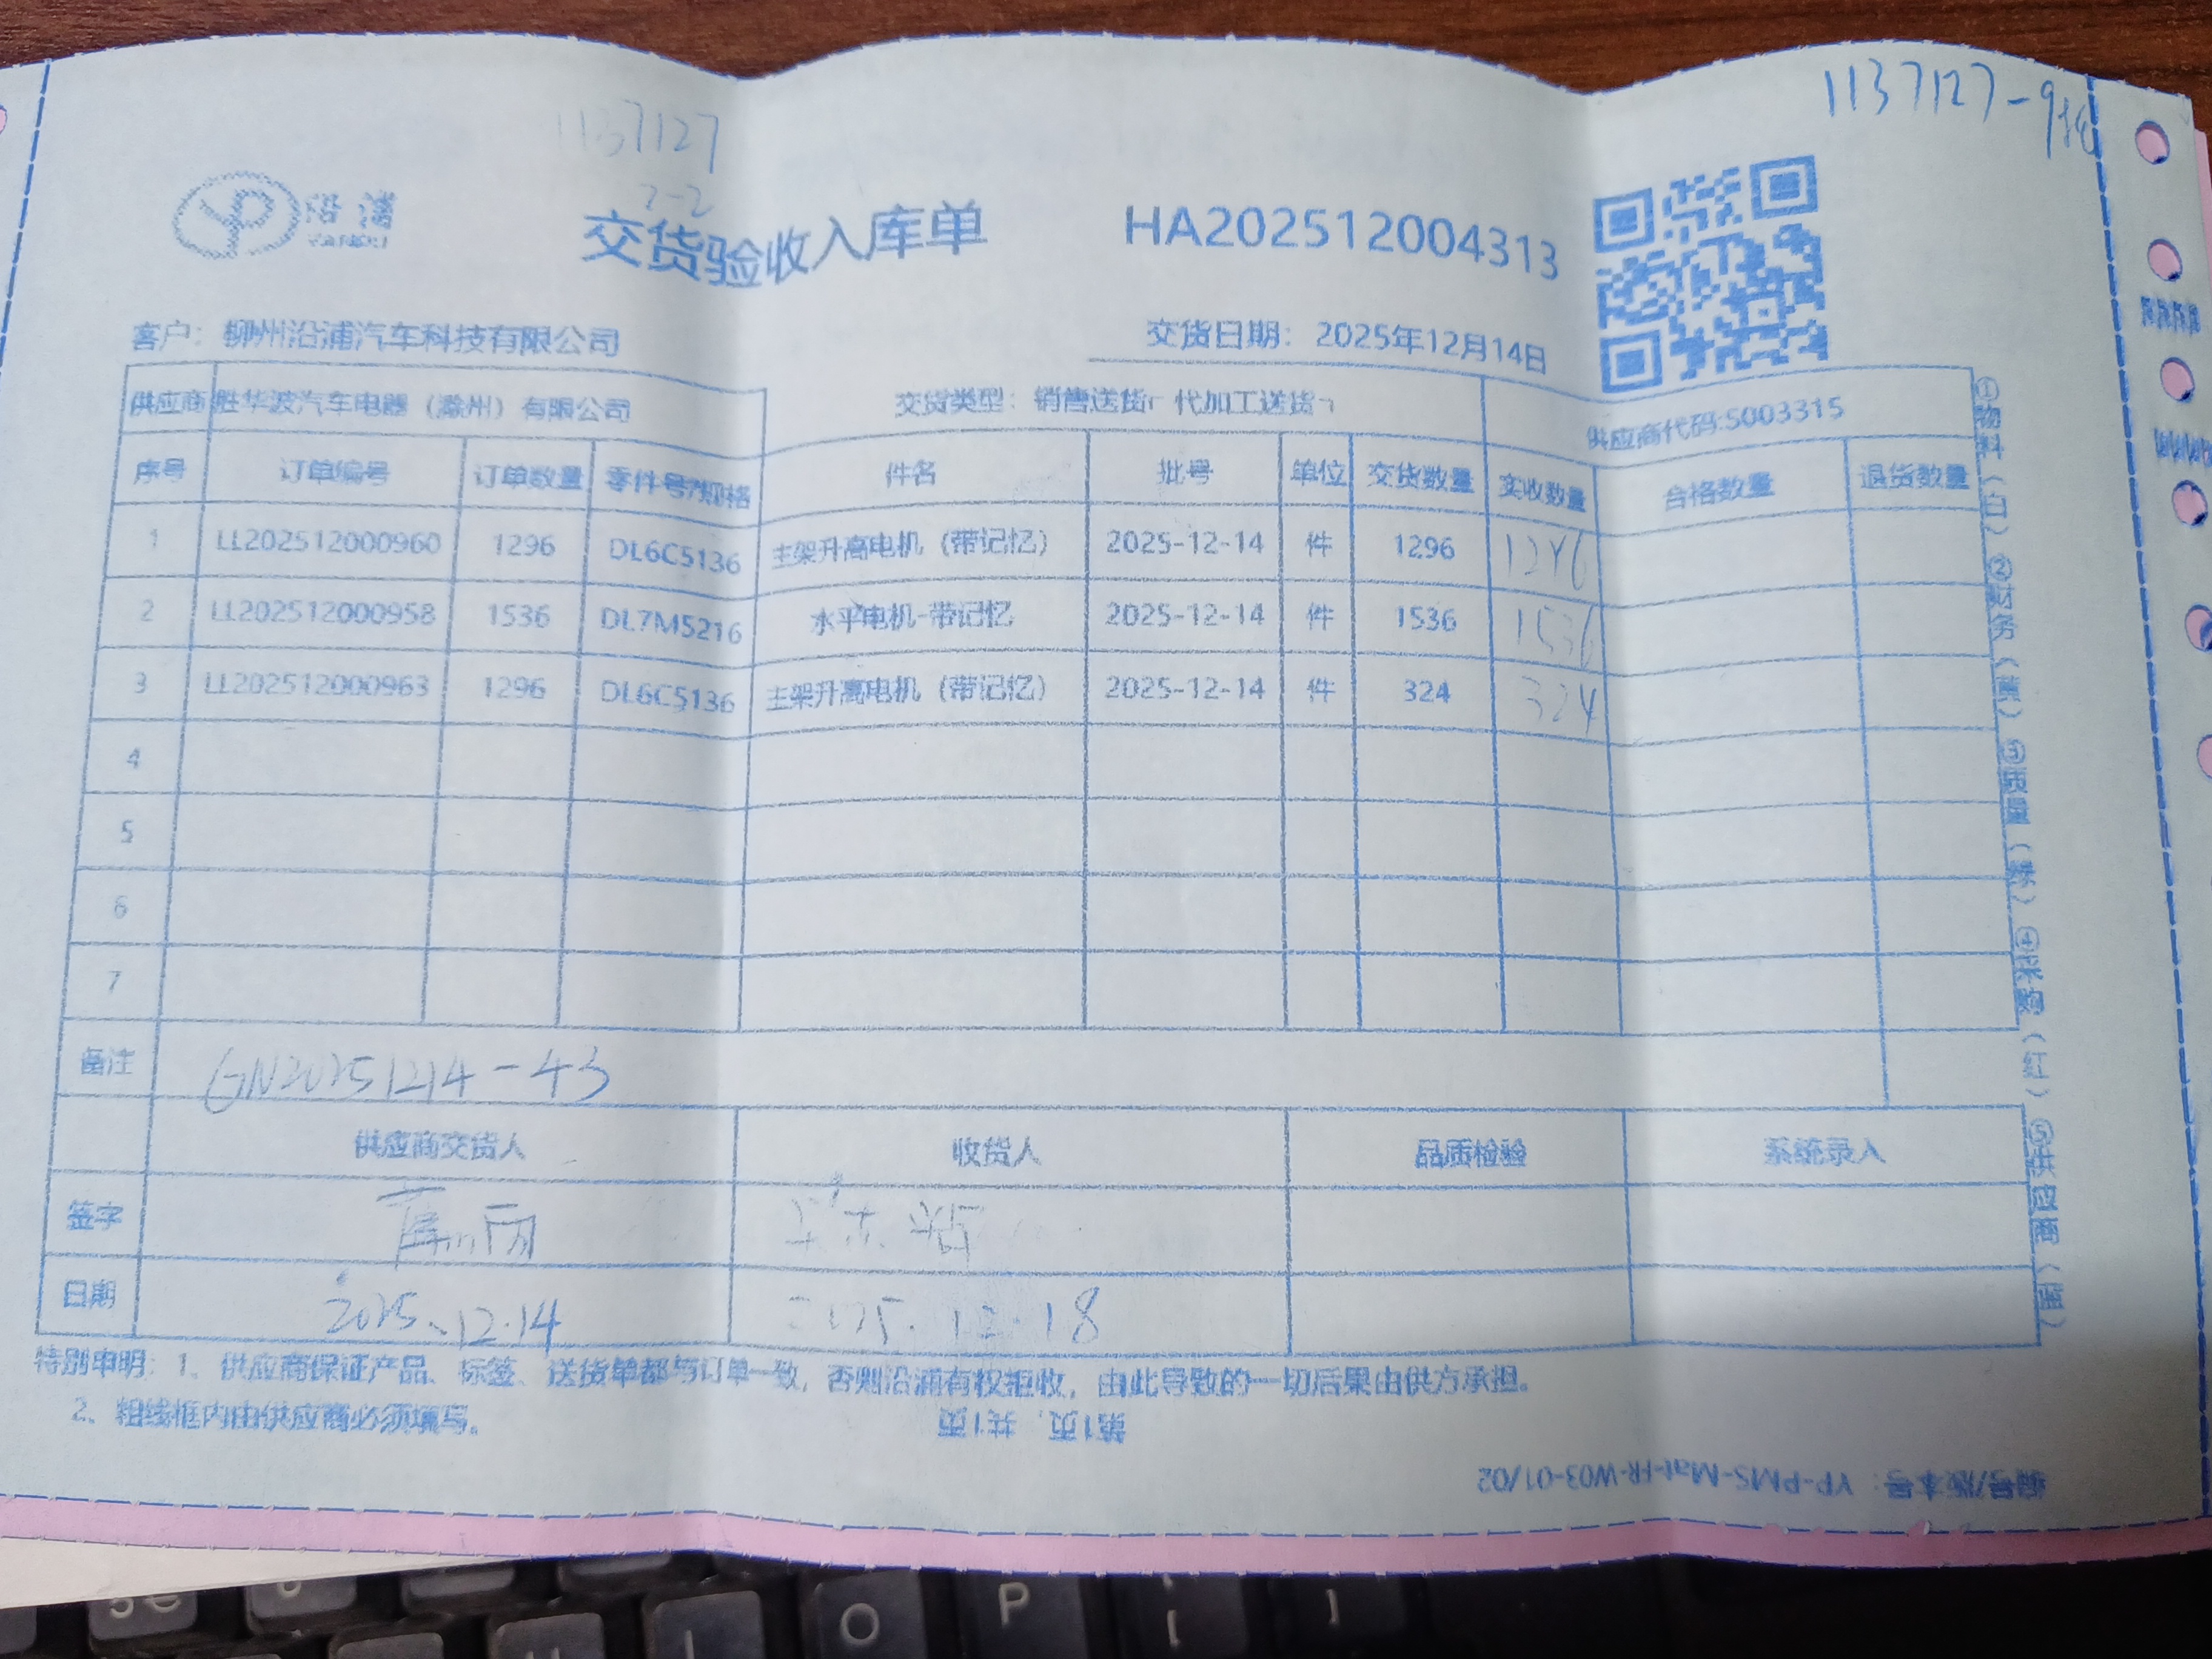 1137127-9
1137127
2-2
沿浦
YANPU
交货验收入库单
HA202512004313
客户：柳州沿浦汽车科技有限公司
交货日期：2025年12月14日
供应商 胜华波汽车电器（滁州）有限公司 交货类型：销售送货 代加工送货 供应商代码:5003315
序号 订单编号 订单数量 零件号/规格 件名 批号 单位 交货数量 实收数量 合格数量 退货数量
1 LL202512000960 1296 DL6C5136 主架升高电机（带记忆） 2025-12-14 件 1296 1296
2 LL202512000958 1536 DL7M5216 水平电机-带记忆 2025-12-14 件 1536 1536
3 LL202512000963 1296 DL6C5136 主架升高电机（带记忆） 2025-12-14 件 324 324
4
5
6
7
备注 GN20251214-43
供应商交货人 收货人 品质检验 系统录入
签字
日期 2025.12.14 2025.12.18
特别申明：1、供应商保证产品、标签、送货单都与订单一致，否则沿浦有权拒收，由此导致的一切后果由供方承担。
2、粗线框内由供应商必须填写。
第1页，共1页
编号/版本号：YP-PMS-Mat-FR-W03-01/02
①物料（白）②财务（黄）③质量（绿）④采购（红）⑤供应商（蓝）
O
P